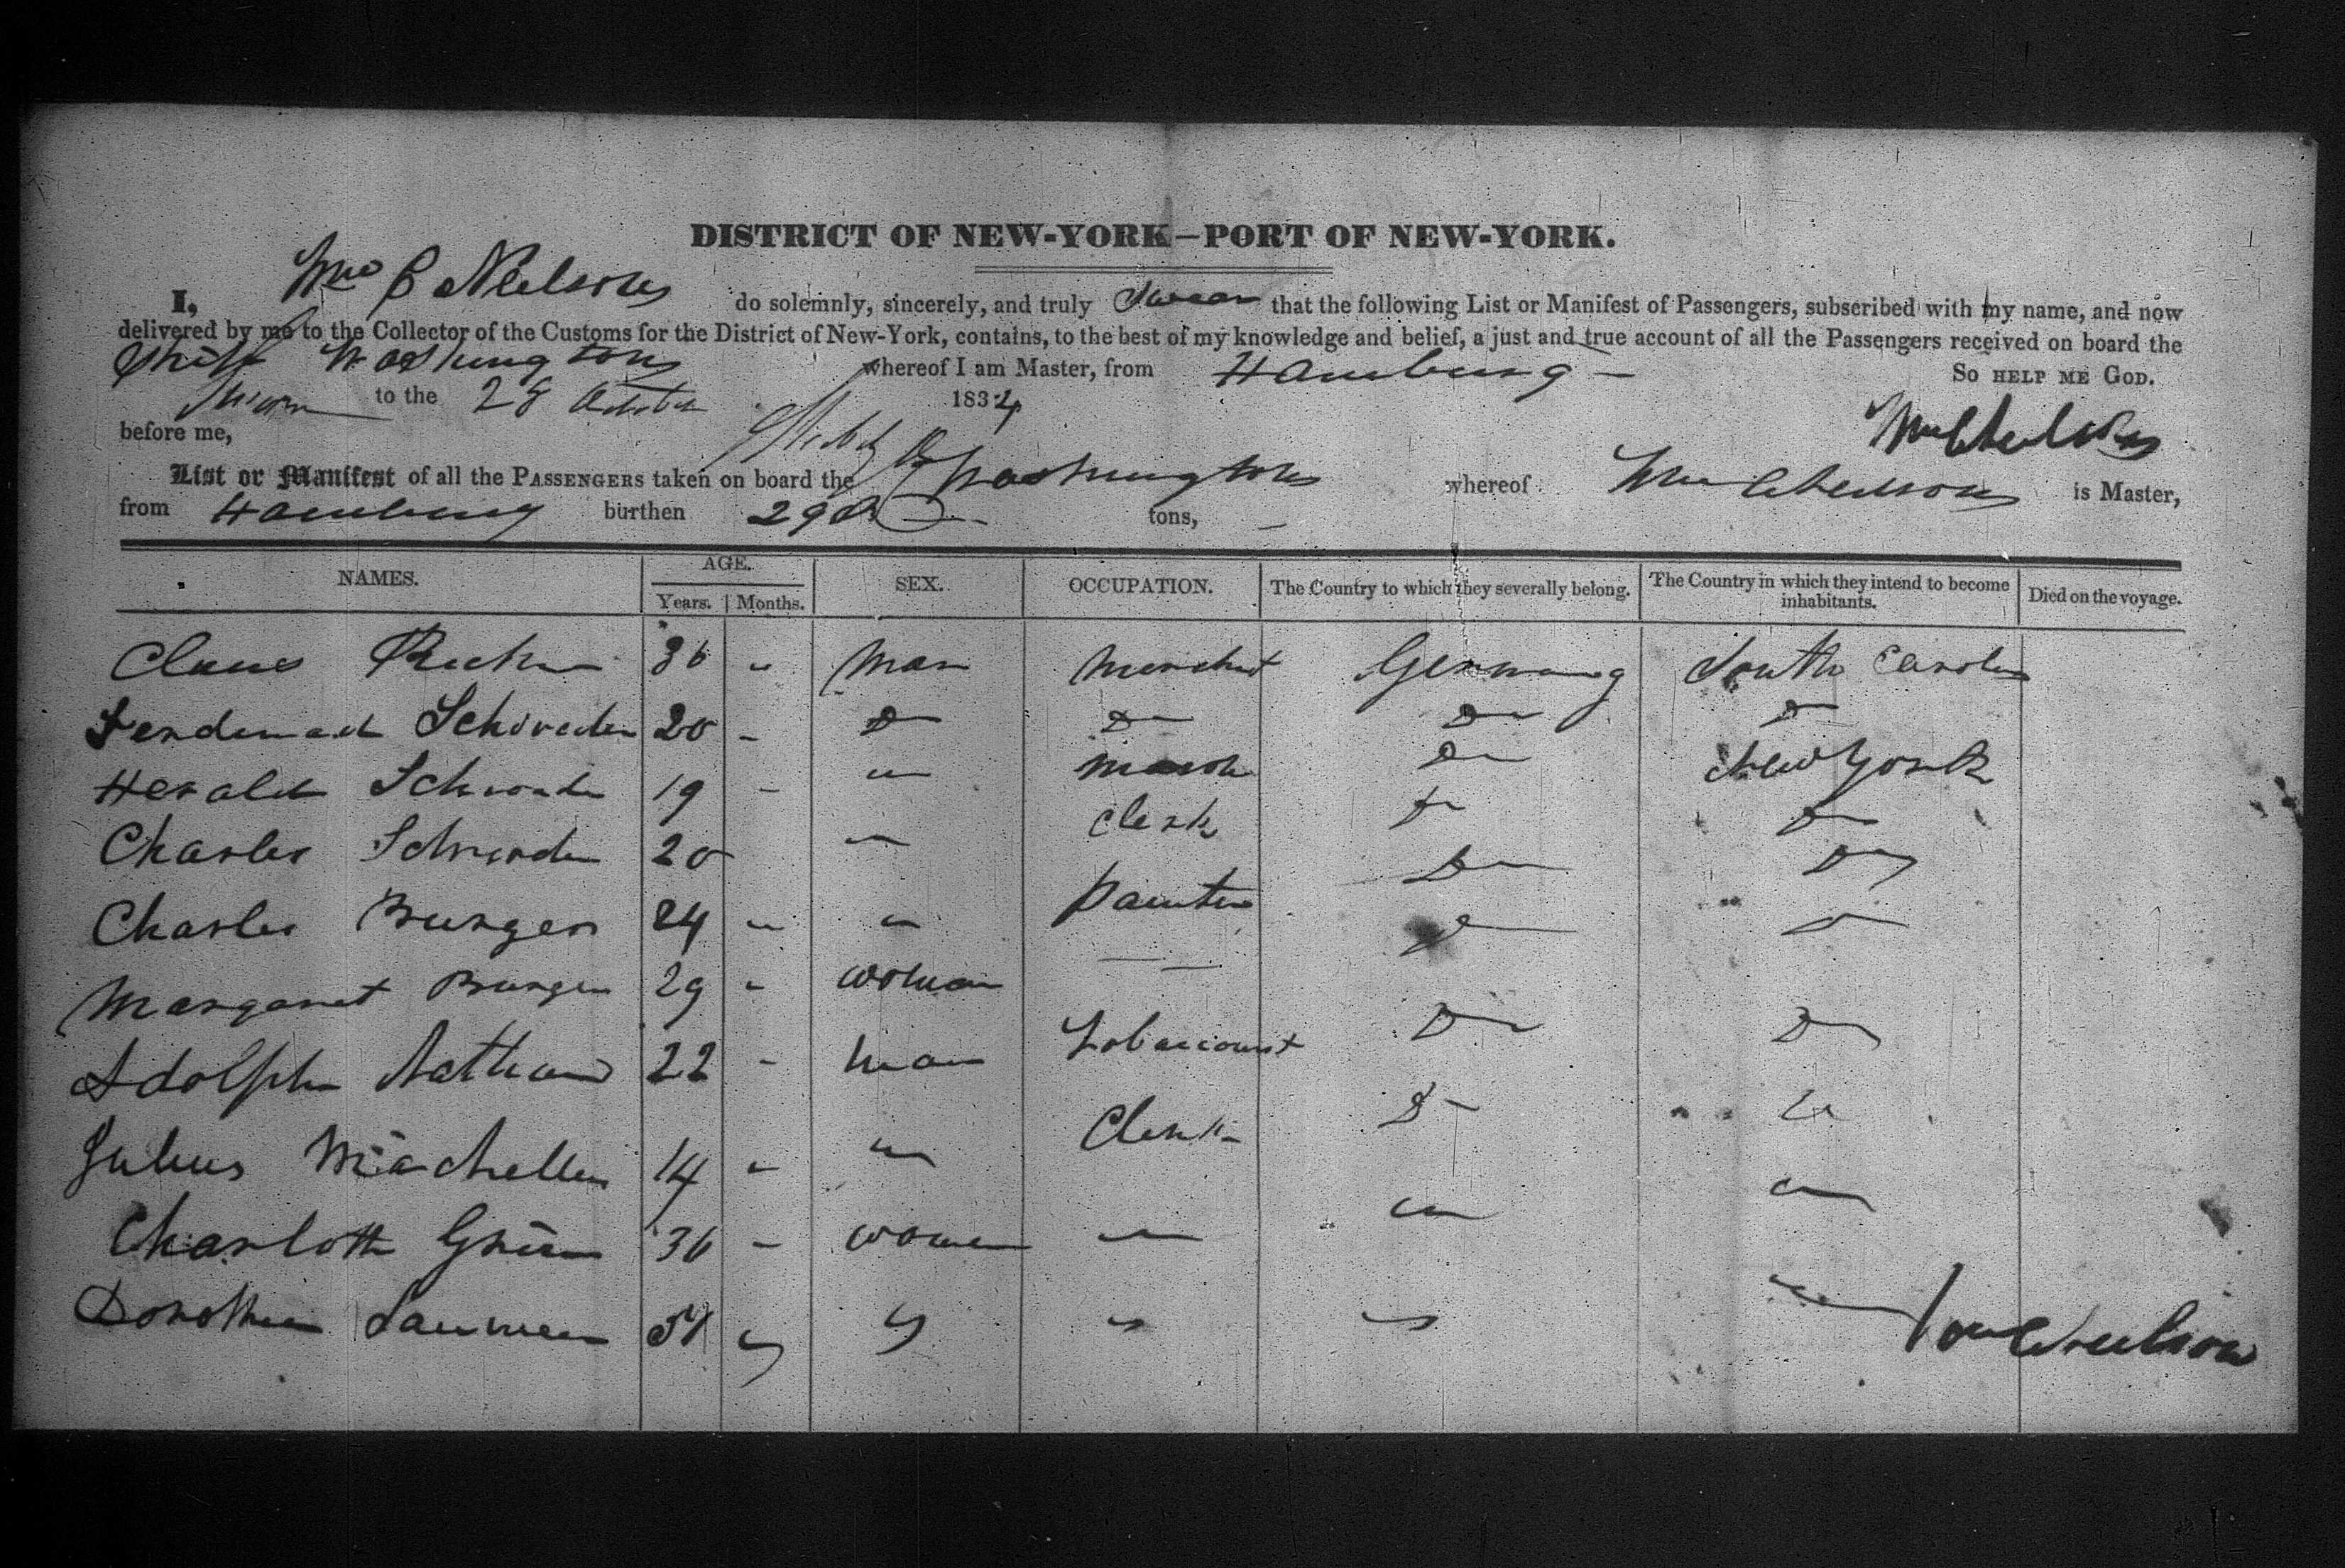 DISTRICT OF NEW-YORK—PORT OF NEW-YORK.
I, Wm C Neilson do solemnly, sincerely, and truly Swear that the following List or Manifest of Passengers, subscribed with my name, and now
delivered by me to the Collector of the Customs for the District of New-York, contains, to the best of my knowledge and belief, a just and true account of all the Passengers received on board the
Ship Washington whereof I am Master, from Hamburg— So HELP ME GOD.
Sworn to the 28 October 1834
before me, Wm C Neilson
List or Manifest of all the PASSENGERS taken on board the Washington whereof Wm C Neilson is Master,
from Hamburg burthen tons, —
NAMES. AGE. SEX. OCCUPATION. The Country to which they severally belong. The Country in which they intend to become inhabitants. Died on the voyage.
Years. Months.
Claus 36 " Man Merchant Germany South Carolina
Ferdinand Schroeder 20 - Do Do Do Do
Herald Schroder 19 - " Mason Do New York
Charles Schroder 20 " Clerk Do Do
Charles Burger 24 " " Painter Do Do
Margaret Burger 29 " Woman — — Do Do
Adolph Nathan 22 - Man Tobacconist Do Do
Julius 14 " " Clerk Do "
Charlotte Grün 36 - Women " " "
Dorothea " " " " "
Wm C Neilson